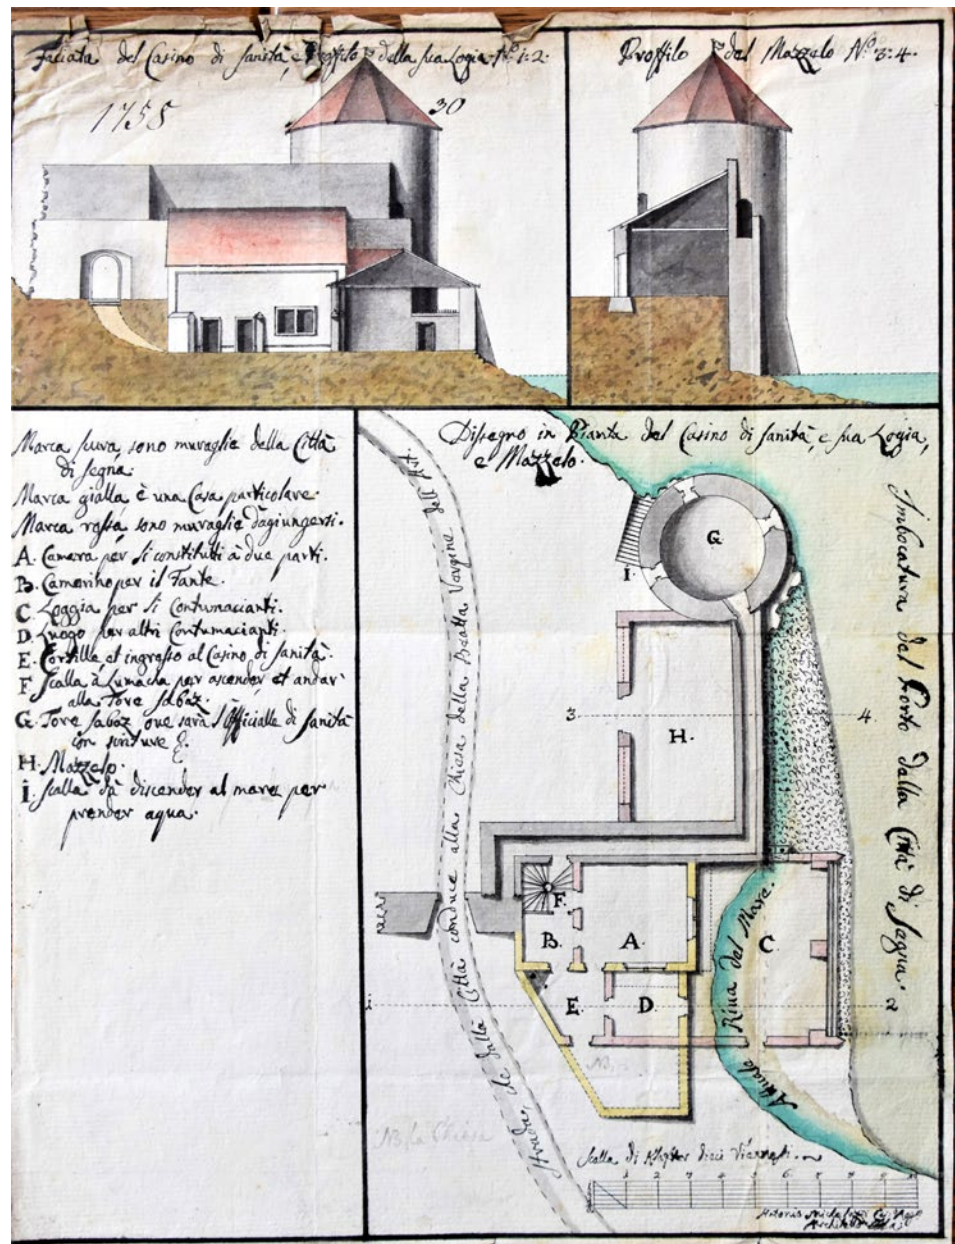 Faciata del Casino di sanità, e Proffilo della sua Logia N.º 1:2.
1758
30
Proffilo del Mazzelo N.º 3:4.
Marca scura, sono muraglie della Città
di Segna.
Marca gialla è una Casa particolare.
Marca rossa, sono muraglie d'agiungersi.
A. Camera per li constituti à due parti.
B. Camerino per il Fante.
C. Loggia per li Contumacianti.
D. Luogo per altri Contumacianti.
E. Cortille et ingresso al Casino di sanità.
F. Scalla à Lumacha per ascender, et andar
alla Tore Sabaz.
G. Tore Sabaz, ove sarà l'Officialle di sanità
con scriture &.
H. Mazzelo.
I. Scalla dà discender al mare per
prender aqua.
Dissegno in Pianta del Casino di sanità, e sua Logia,
e Mazzelo.
Imbocatura del Porto della Città di Segna.
Strada, che dalla Città conduce alla Chiesa della Beatta Vergine dell' Art.
G
I.
3
4.
H.
F.
B.
A.
C.
E.
D.
1
2
Riva del Mare.
Attuale
NB.
NB la Chiesa
Scalla di Klafter dieci Viennesi.
1 2 3 4 5 6 7 8 9 10
Antonio
Architetto